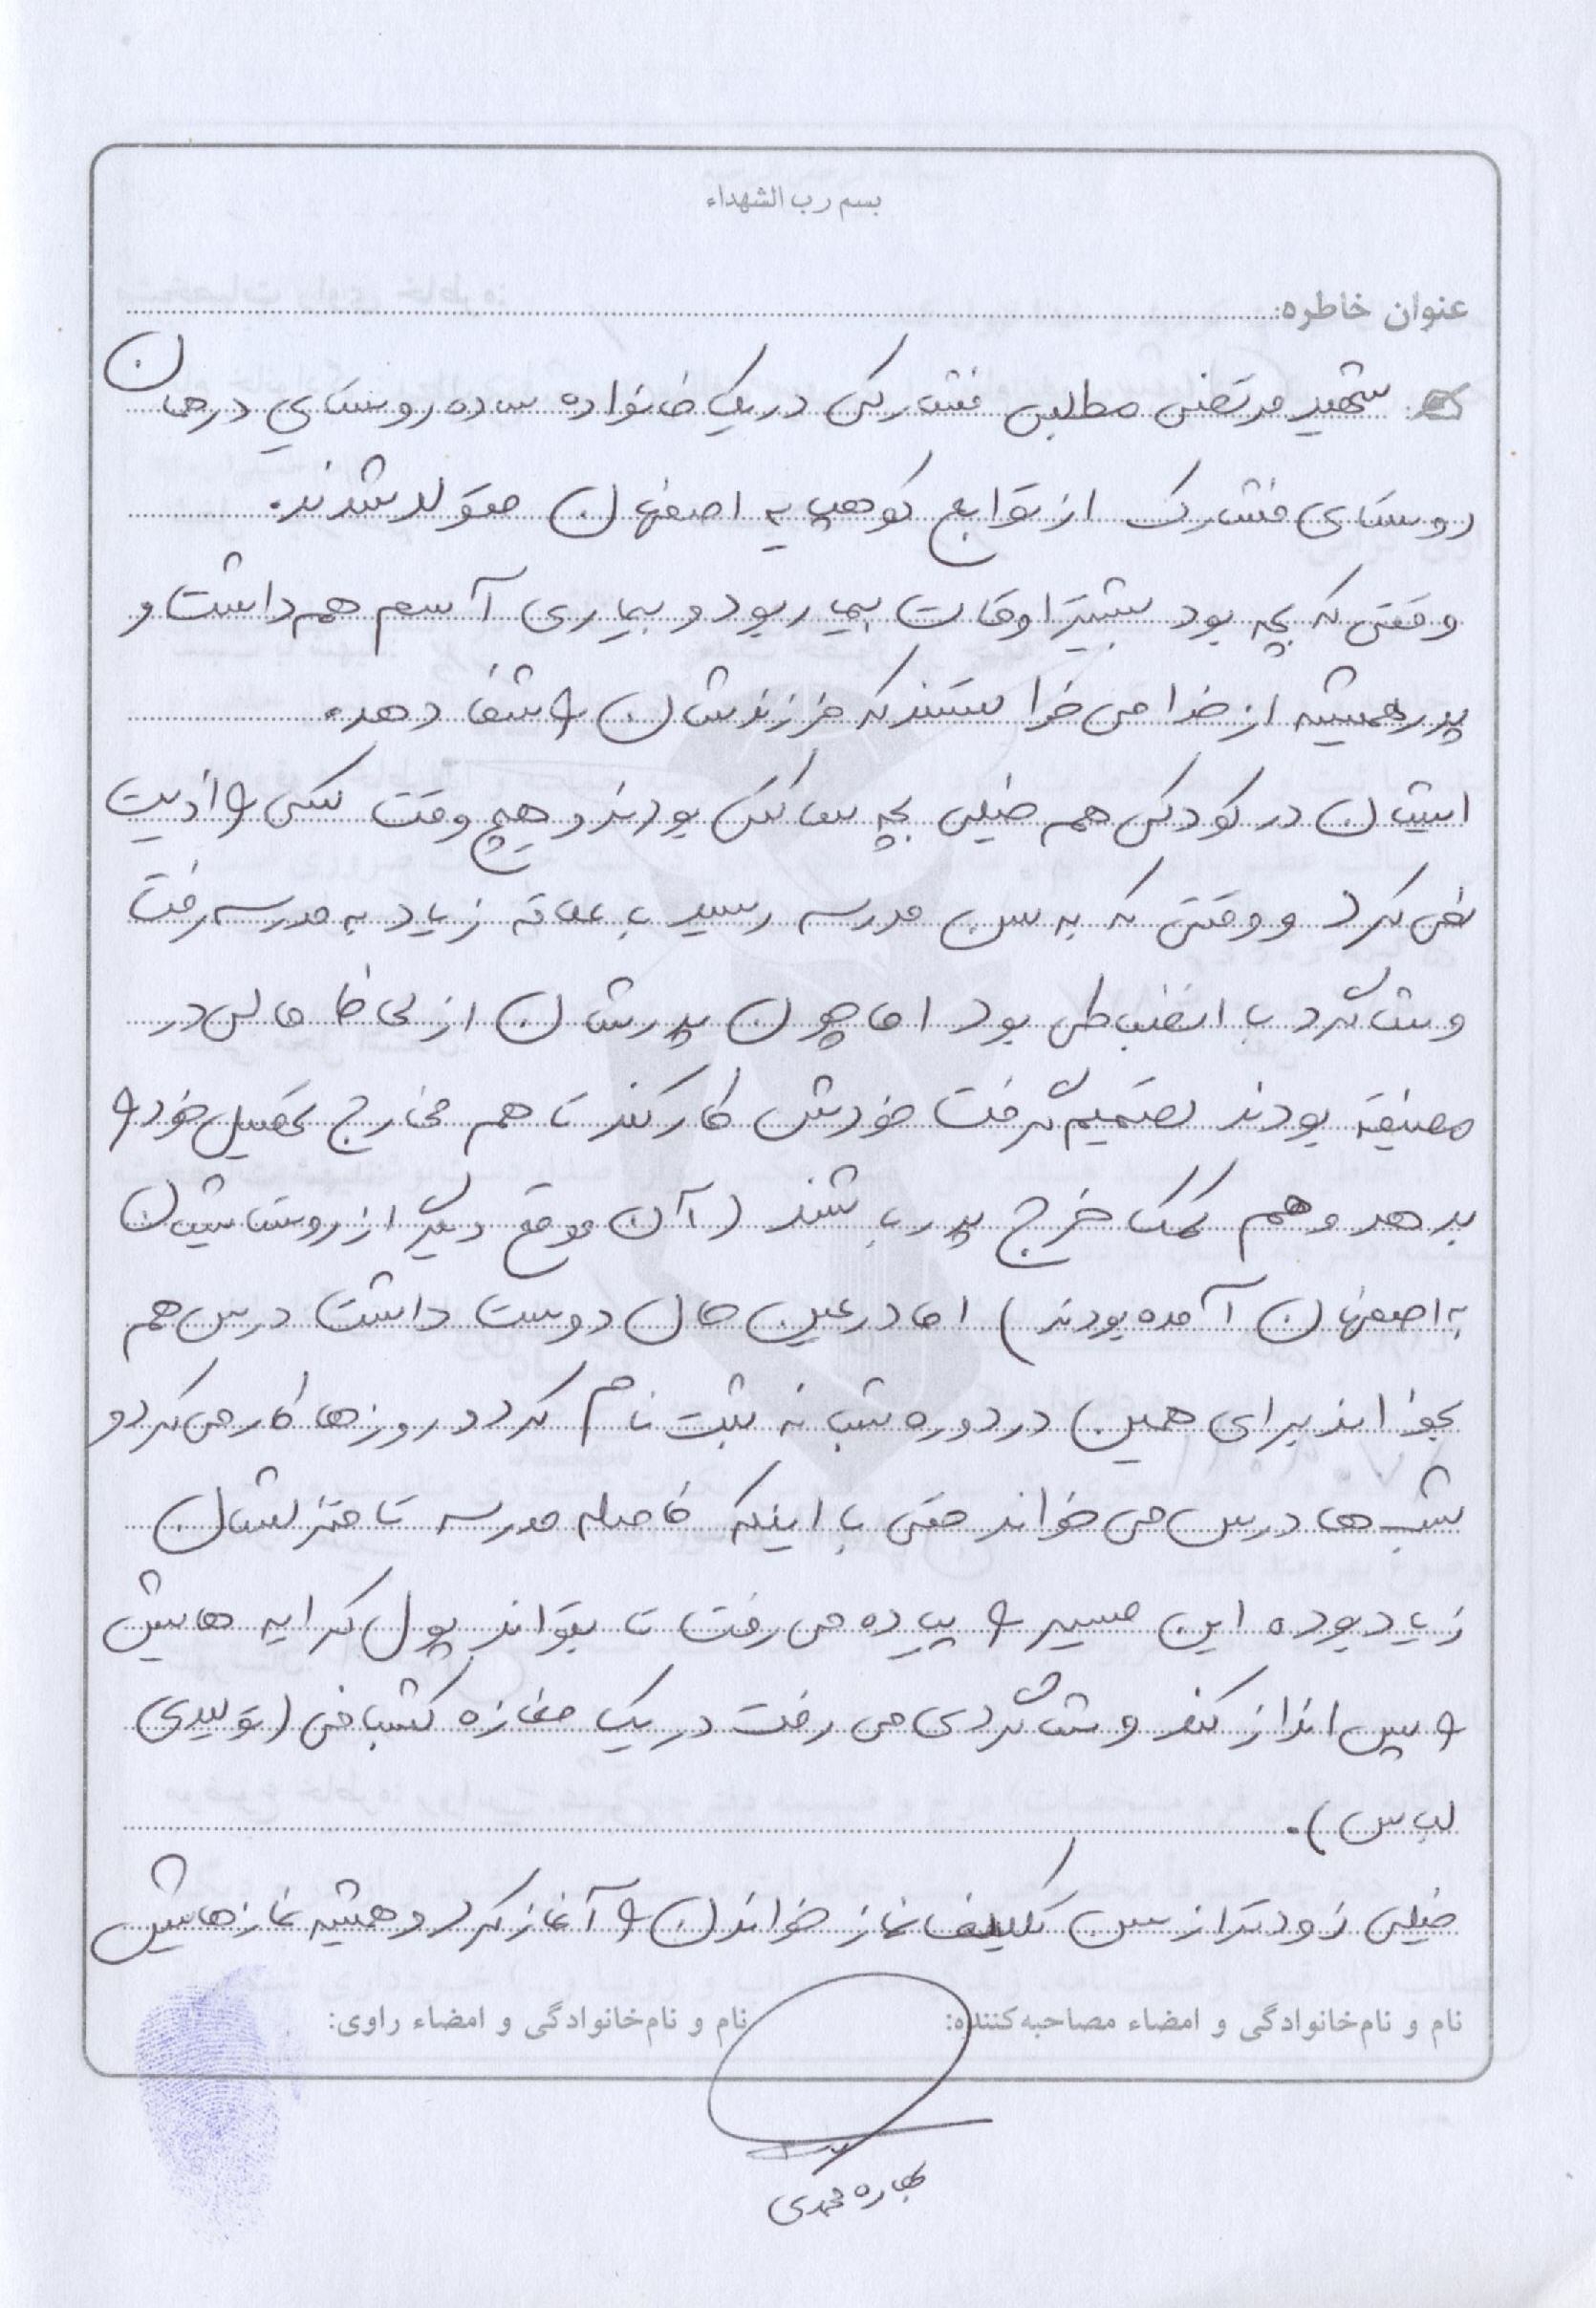 بسم رب الشهداء
عنوان خاطره:
شهید مرتضی مطلبی فشارکی در یک خانواده ساده روستایی در همان
روستای فشارک از توابع کوهپایه اصفهان متولد شدند.
وقتی که بچه بود بیشتر اوقات بیمار بود و بیماری آسم هم داشت و
پدر همیشه از خدا می خواستند که فرزندشان را شفا دهد.
ایشان در کودکی هم خیلی بچه ساکتی بودند و هیچ وقت کسی را اذیت
نمی کرد و وقتی که به سن مدرسه رسید با علاقه زیاد به مدرسه رفت
و شاگرد با انضباطی بود اما چون پدرشان از لحاظ مالی در
مضیقه بودند تصمیم گرفت خودش کار کند تا هم مخارج تحصیل خود را
بدهد و هم کمک خرج پدر باشند (آن موقع دیگر از روستایشان
به اصفهان آمده بودند) اما در عین حال دوست داشت درس هم
بخواند برای همین در دوره شبانه ثبت نام کرد و روزها کار می کرد و
شب ها درس می خواند حتی با اینکه فاصله مدرسه تا منزلشان
زیاد بوده این مسیر را پیاده می رفت تا بتواند پول کرایه هایش
را پس انداز کند و شاگردی می رفت در یک مغازه کشبافی (تولیدی
لباس).
خیلی زودتر از سن تکلیف نماز خواندن را آغاز کرد و همیشه نمازهایش
نام و نام‌خانوادگی و امضاء مصاحبه‌کننده:
نام و نام‌خانوادگی و امضاء راوی:
بهاره محمدی